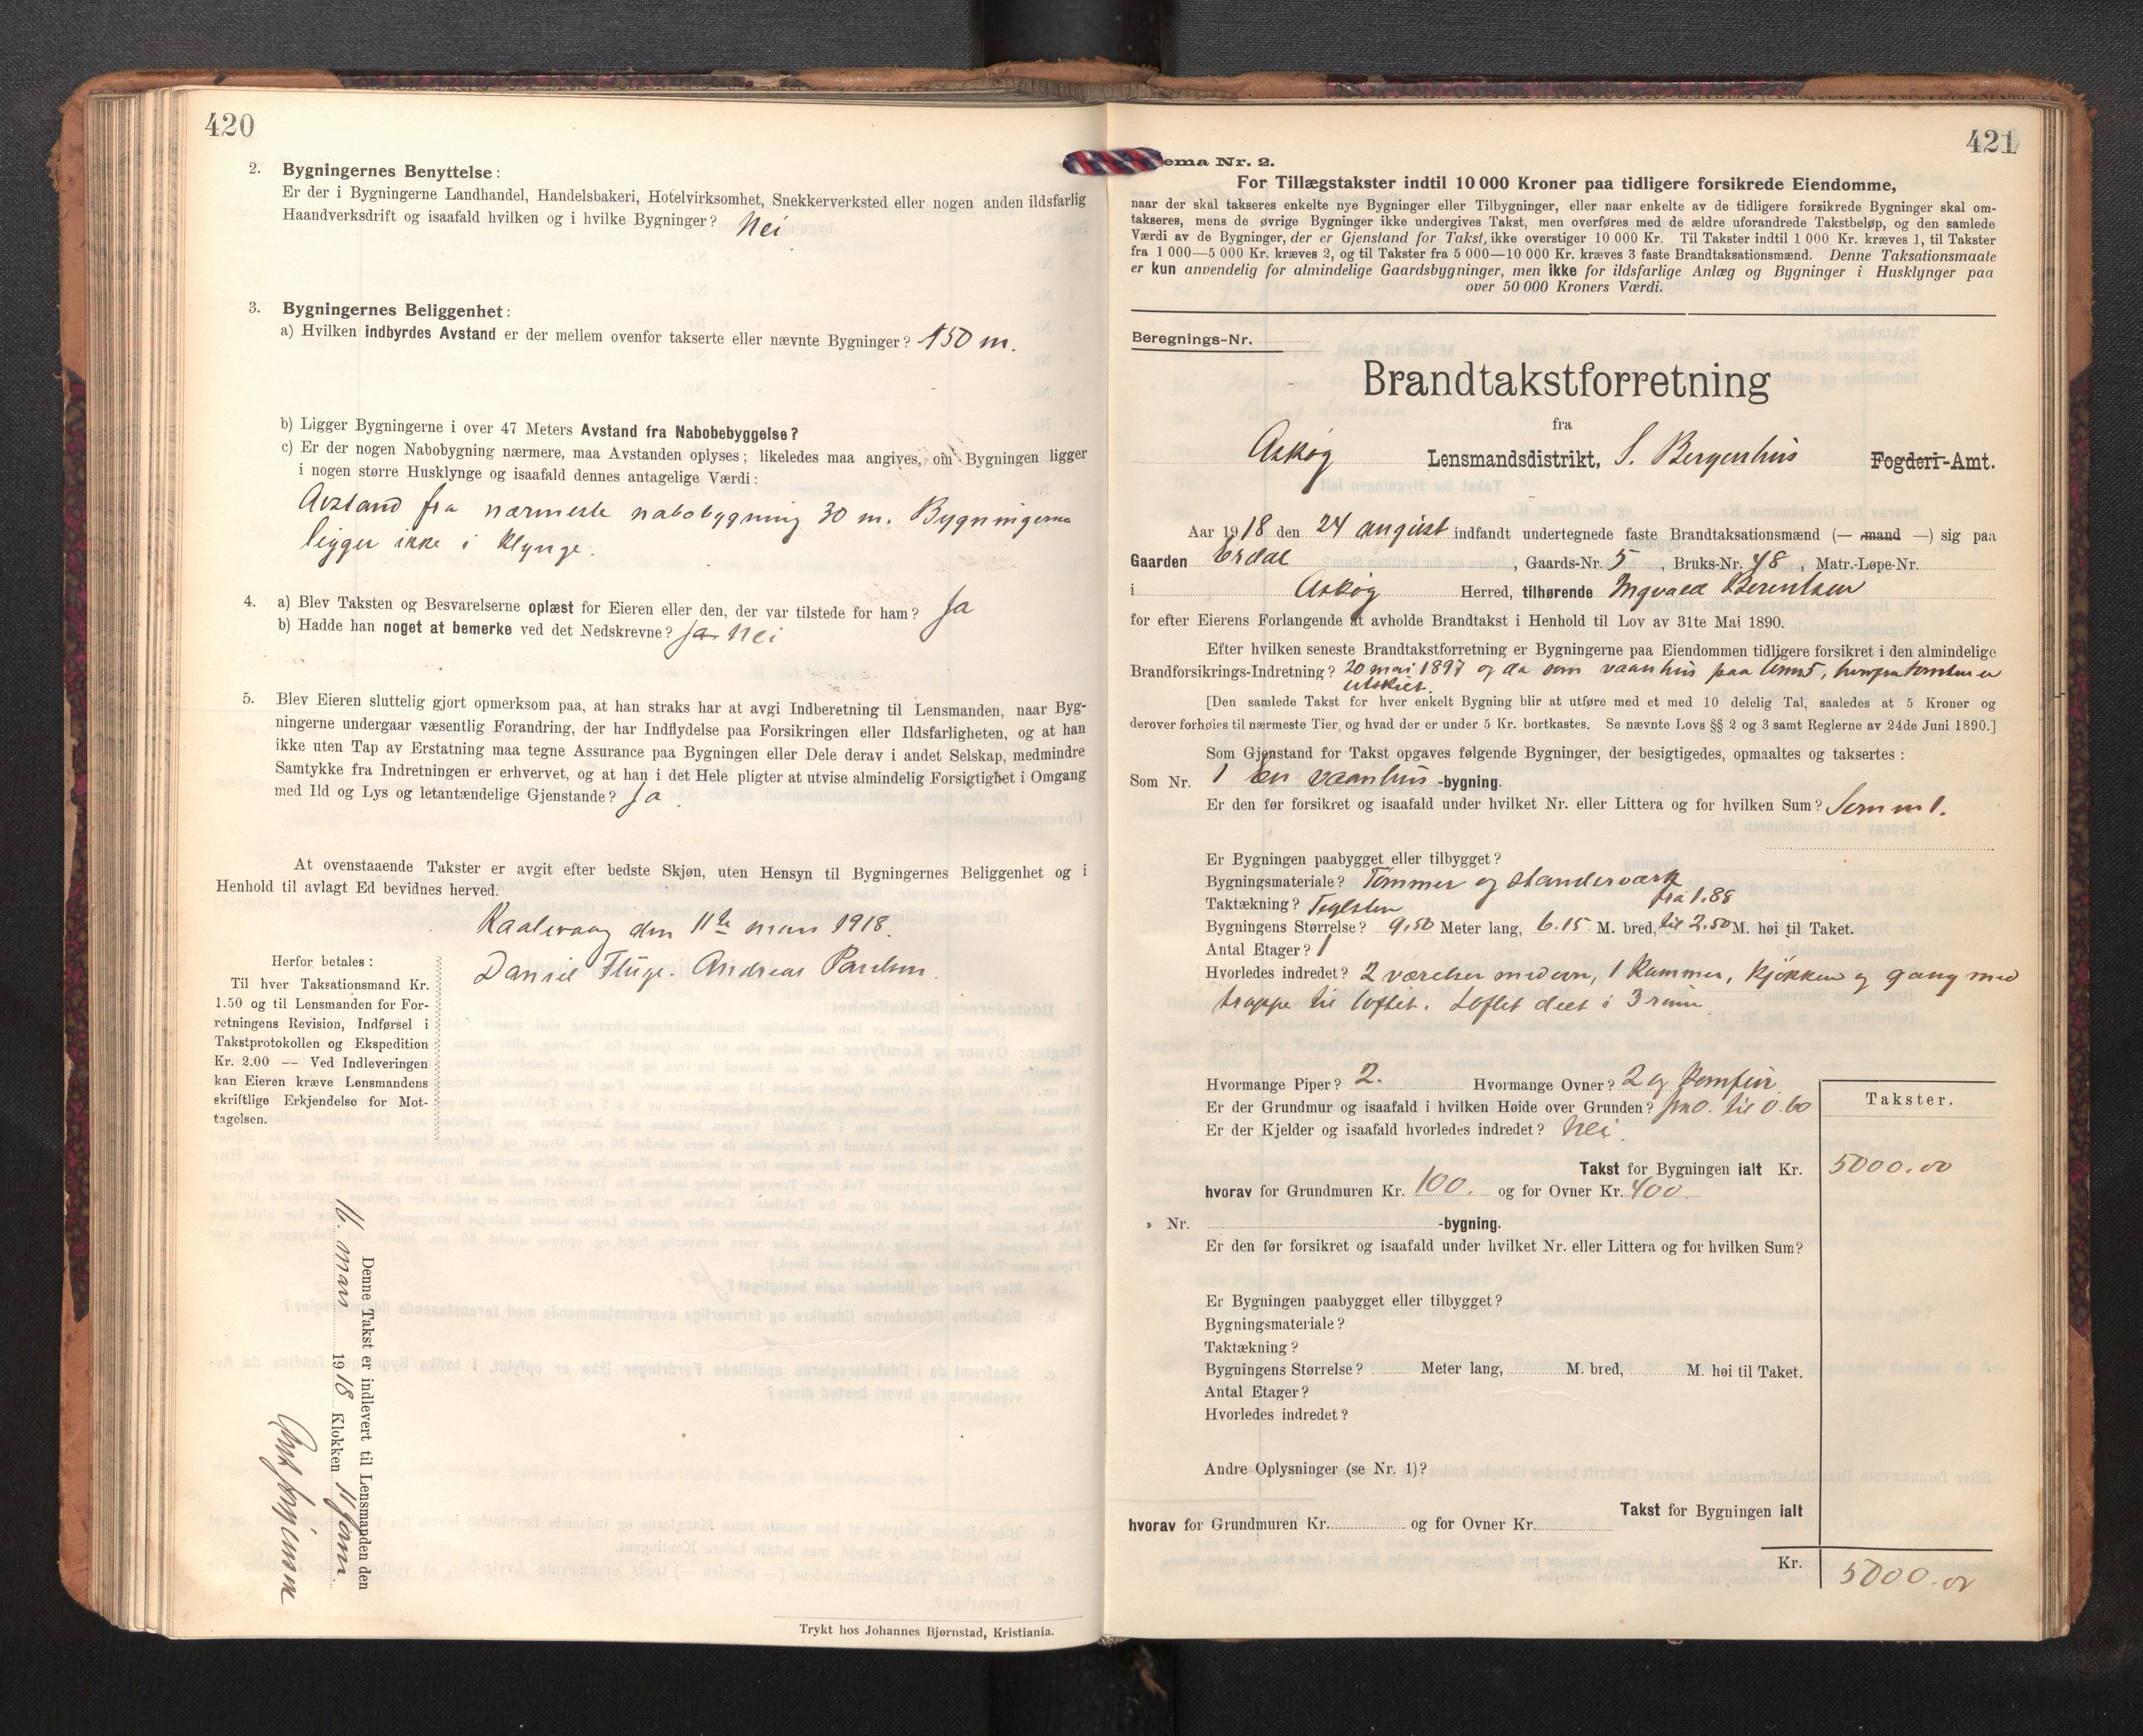 420
2. Bygningernes Benyttelse:
Er der i Bygningerne Landhandel, Handelsbakeri, Hotelvirksomhet, Snekkerverksted eller nogen anden ildsfarlig
Haandverksdrift og isaafald hvilken og i hvilke Bygninger? Nei
3. Bygningernes Beliggenhet:
a) Hvilken indbyrdes Avstand er der mellem ovenfor takserte eller nævnte Bygninger? 150 m.
b) Ligger Bygningerne i over 47 Meters Avstand fra Nabobebyggelse?
c) Er der nogen Nabobygning nærmere, maa Avstanden oplyses; likeledes maa angives, om Bygningen ligger
i nogen større Husklynge og isaafald dennes antagelige Værdi:
Avstand fra nærmeste nabobygning 30 m. Bygningerne
ligger ikke i klynge.
4. a) Blev Taksten og Besvarelserne oplæst for Eieren eller den, der var tilstede for ham? Ja
b) Hadde han noget at bemerke ved det Nedskrevne? Ja Nei
5. Blev Eieren sluttelig gjort opmerksom paa, at han straks har at avgi Indberetning til Lensmanden, naar Byg-
ningerne undergaar væsentlig Forandring, der har Indflydelse paa Forsikringen eller Ildsfarligheten, og at han
ikke uten Tap av Erstatning maa tegne Assurance paa Bygningen eller Dele derav i andet Selskap, medmindre
Samtykke fra Indretningen er erhvervet, og at han i det Hele pligter at utvise almindelig Forsigtighet i Omgang
med Ild og Lys og letantændelige Gjenstande? Ja
At ovenstaaende Takster er avgit efter bedste Skjøn, uten Hensyn til Bygningernes Beliggenhet og i
Henhold til avlagt Ed bevidnes herved.
den 11te mars 1918.
Daniel Fluge. Andreas Paulsen.
Herfor betales:
Til hver Taksationsmand Kr.
1.50 og til Lensmanden for For-
retningens Revision, Indførsel i
Takstprotokollen og Ekspedition
Kr. 2.00 — Ved Indleveringen
kan Eieren kræve Lensmandens
skriftlige Erkjendelse for Mot-
tagelsen.
Denne Takst er indlevert til Lensmanden den
16. mars 1918 Klokken 11 form
Trykt hos Johannes Bjørnstad, Kristiania.
421
ema Nr. 2.
For Tillægstakster indtil 10 000 Kroner paa tidligere forsikrede Eiendomme,
naar der skal takseres enkelte nye Bygninger eller Tilbygninger, eller naar enkelte av de tidligere forsikrede Bygninger skal om-
takseres, mens de øvrige Bygninger ikke undergives Takst, men overføres med de ældre uforandrede Takstbeløp, og den samlede
Værdi av de Bygninger, der er Gjenstand for Takst, ikke overstiger 10 000 Kr. Til Takster indtil 1 000 Kr. kræves 1, til Takster
fra 1 000—5 000 Kr. kræves 2, og til Takster fra 5 000—10 000 Kr. kræves 3 faste Brandtaksationsmænd. Denne Taksationsmaate
er kun anvendelig for almindelige Gaardsbygninger, men ikke for ildsfarlige Anlæg og Bygninger i Husklynger paa
over 50 000 Kroners Værdi.
Beregnings-Nr.
Brandtakstforretning
fra
Askøy Lensmandsdistrikt, S. Bergenhus Fogderi-Amt.
Aar 1918 den 24 august indfandt undertegnede faste Brandtaksationsmænd (— mand —) sig paa
Gaarden Erdal, Gaards-Nr. 5, Bruks-Nr. 48, Matr.-Løpe-Nr.
i Askøy Herred, tilhørende Ingvald Berentsen
for efter Eierens Forlangende at avholde Brandtakst i Henhold til Lov av 31te Mai 1890.
Efter hvilken seneste Brandtakstforretning er Bygningerne paa Eiendommen tidligere forsikret i den almindelige
Brandforsikrings-Indretning? 20 mai 1897 og da som vaanhus paa
utskilt.
[Den samlede Takst for hver enkelt Bygning blir at utføre med et med 10 delelig Tal, saaledes at 5 Kroner og
derover forhøies til nærmeste Tier, og hvad der er under 5 Kr. bortkastes. Se nævnte Lovs §§ 2 og 3 samt Reglerne av 24de Juni 1890.]
Som Gjenstand for Takst opgaves følgende Bygninger, der besigtigedes, opmaaltes og taksertes:
Som Nr. 1 En vaanhus -bygning.
Er den før forsikret og isaafald under hvilket Nr. eller Littera og for hvilken Sum? Som nr 1.
Er Bygningen paabygget eller tilbygget?
Bygningsmateriale? Tømmer og standerværk
Taktækning? Teglsten fra 1.88
Bygningens Størrelse? 9,50 Meter lang, 6.15 M. bred, til 2.50 M. høi til Taket.
Antal Etager? 1
Hvorledes indredet? 2 værelser med ovn, 1 kammer, kjøkken og gang med
trappe til loftet. Loftet delt i 3 rum
Hvormange Piper? 2. Hvormange Ovner? 2 og komfur
Er der Grundmur og isaafald i hvilken Høide over Grunden? fra 0. til 0.60
Er der Kjelder og isaafald hvorledes indredet? Nei.
Takster.
Takst for Bygningen ialt Kr. 5000.00
hvorav for Grundmuren Kr. 100. og for Ovner Kr. 400.
» Nr. -bygning.
Er den før forsikret og isaafald under hvilket Nr. eller Littera og for hvilken Sum?
Er Bygningen paabygget eller tilbygget?
Bygningsmateriale?
Taktækning?
Bygningens Størrelse? Meter lang, M. bred, M. høi til Taket.
Antal Etager?
Hvorledes indredet?
Andre Oplysninger (se Nr. 1)?
Takst for Bygningen ialt
hvorav for Grundmuren Kr. og for Ovner Kr.
Kr. 5000.00